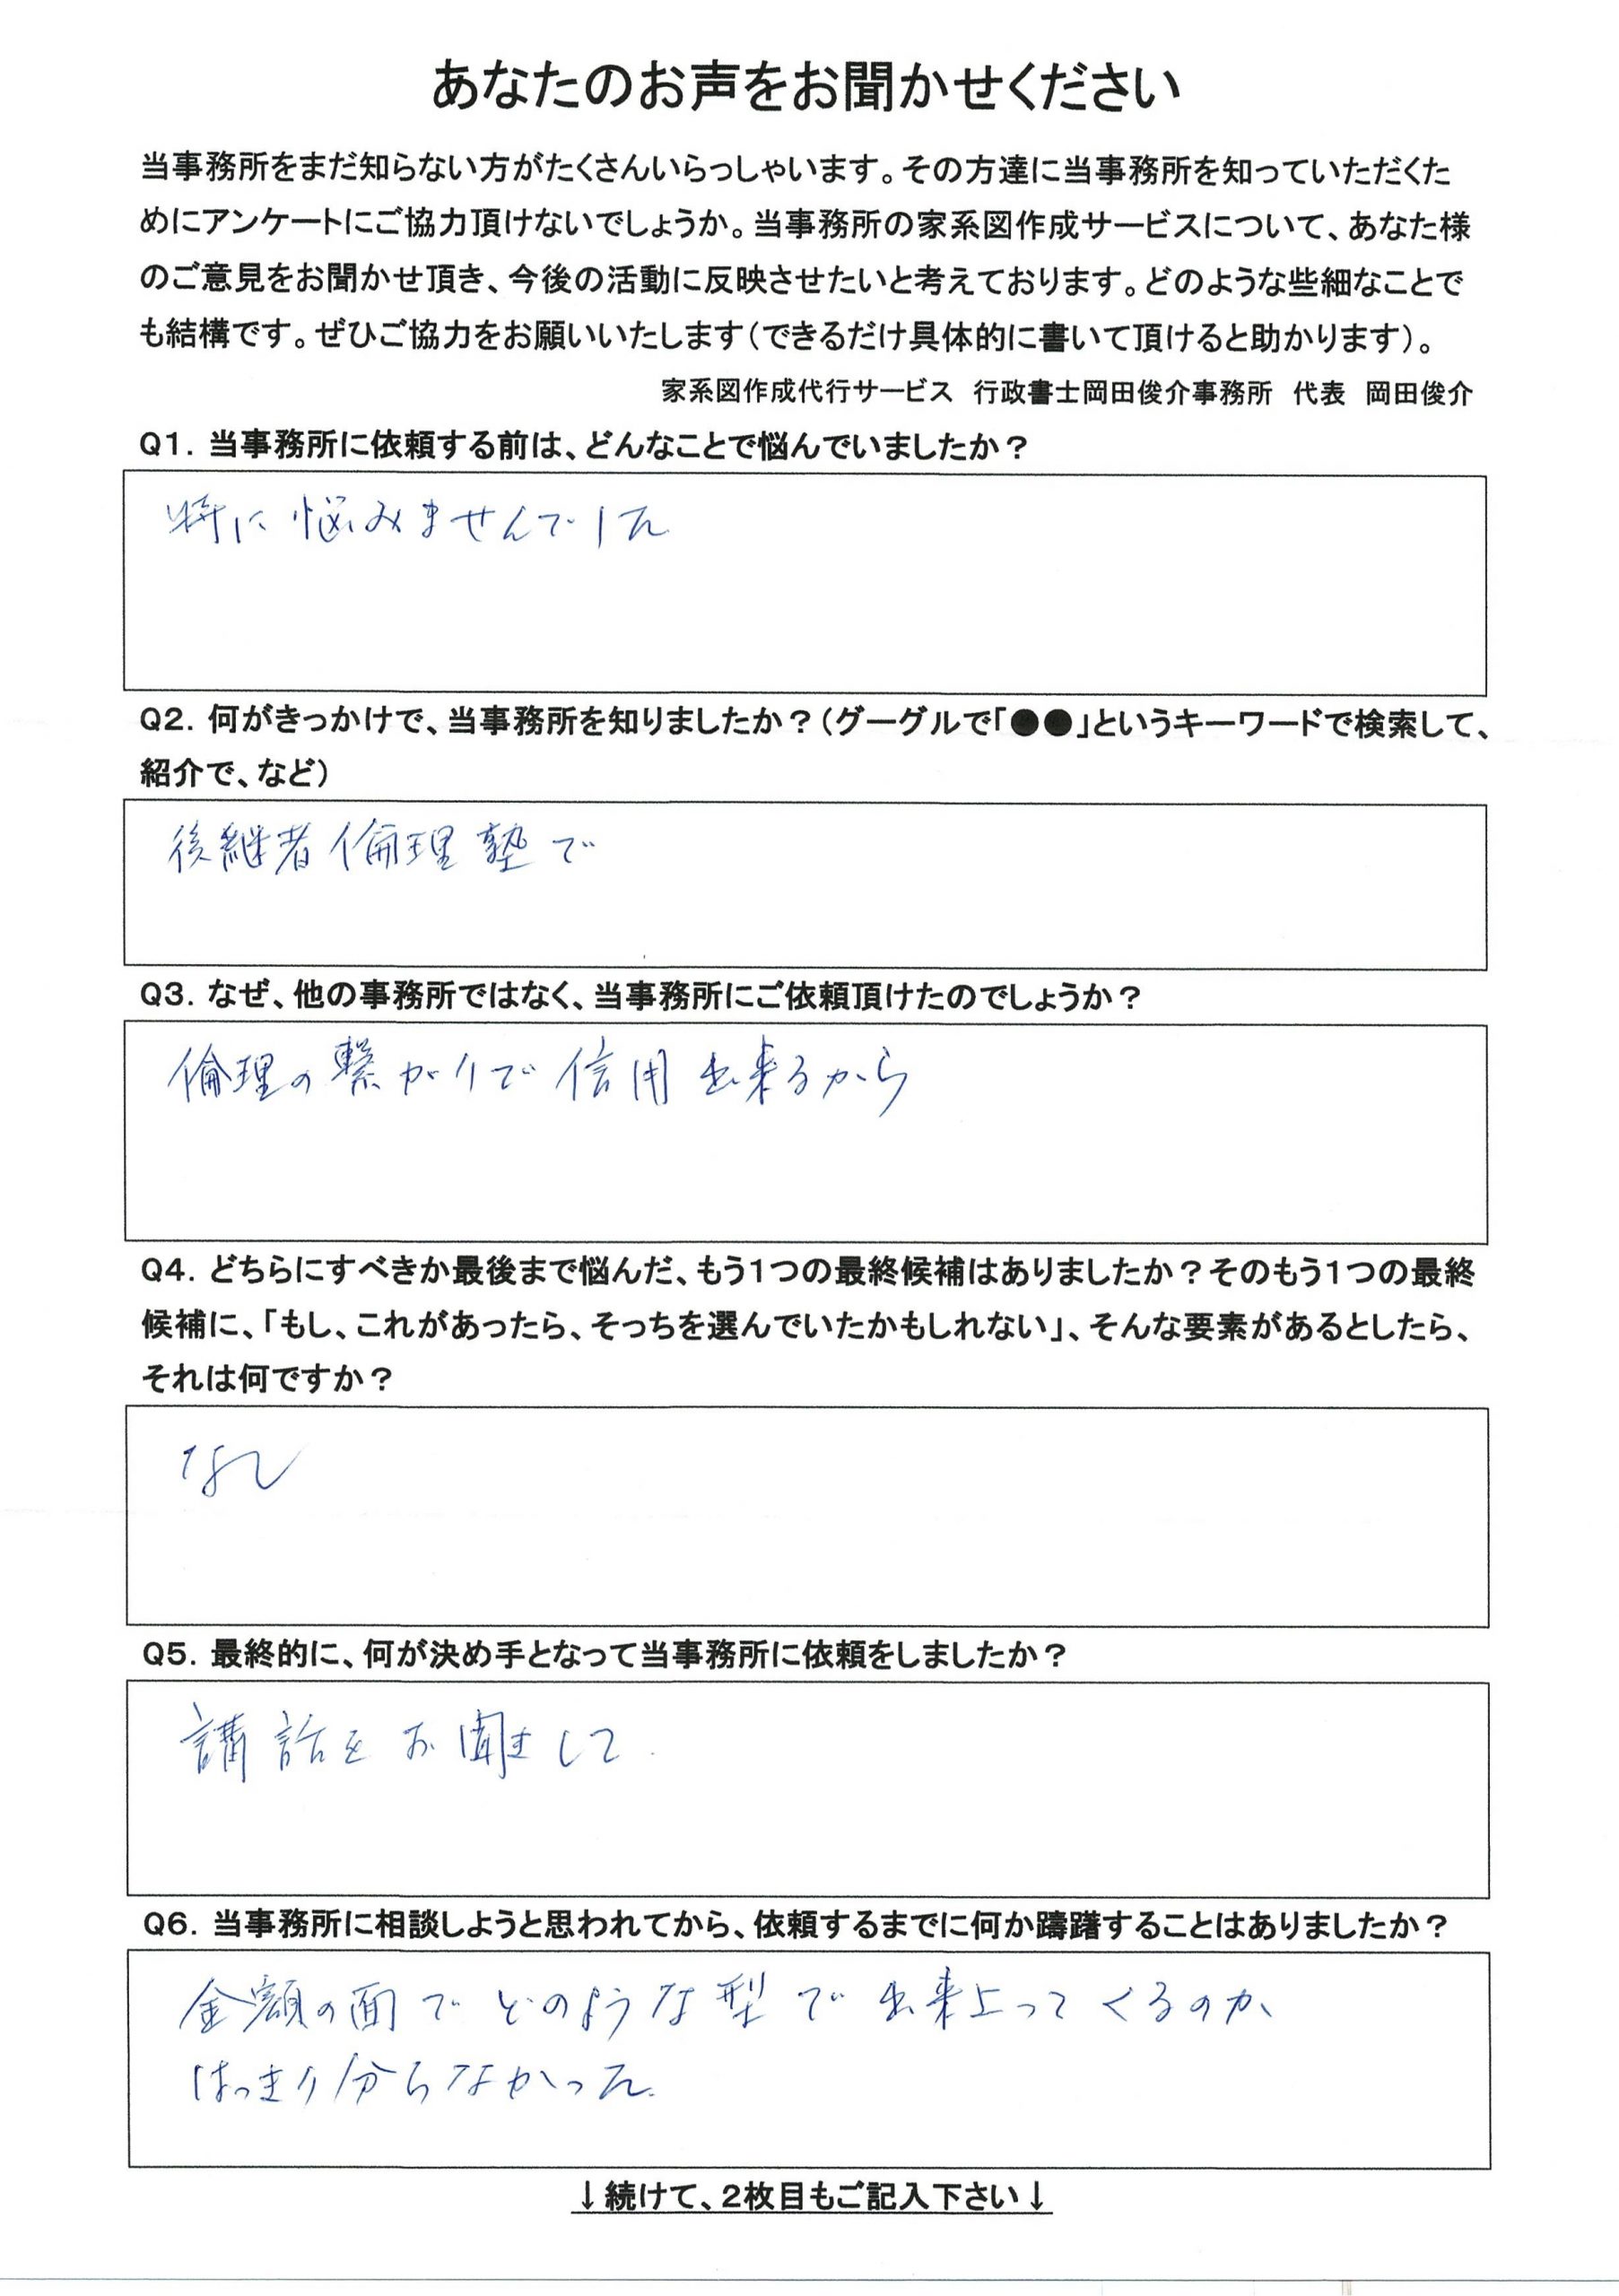 あなたのお声をお聞かせください
当事務所をまだ知らない方がたくさんいらっしゃいます。その方達に当事務所を知っていただくた
めにアンケートにご協力頂けないでしょうか。当事務所の家系図作成サービスについて、あなた様
のご意見をお聞かせ頂き、今後の活動に反映させたいと考えております。どのような些細なことで
も結構です。ぜひご協力をお願いいたします（できるだけ具体的に書いて頂けると助かります）。
家系図作成代行サービス 行政書士岡田俊介事務所 代表 岡田俊介
Q1. 当事務所に依頼する前は、どんなことで悩んでいましたか？
特に悩みませんでした
Q2. 何がきっかけで、当事務所を知りましたか？（グーグルで「●●」というキーワードで検索して、
紹介で、など）
後継者倫理塾で
Q3. なぜ、他の事務所ではなく、当事務所にご依頼頂けたのでしょうか？
倫理の繋がりで信用出来るから
Q4. どちらにすべきか最後まで悩んだ、もう1つの最終候補はありましたか？そのもう1つの最終
候補に、「もし、これがあったら、そっちを選んでいたかもしれない」、そんな要素があるとしたら、
それは何ですか？
なし
Q5. 最終的に、何が決め手となって当事務所に依頼をしましたか？
講話をお聞きして.
Q6. 当事務所に相談しようと思われてから、依頼するまでに何か躊躇することはありましたか？
金額の面でどのような型で出来上ってくるのか、
はっきり分らなかった.
↓続けて、2枚目もご記入下さい↓